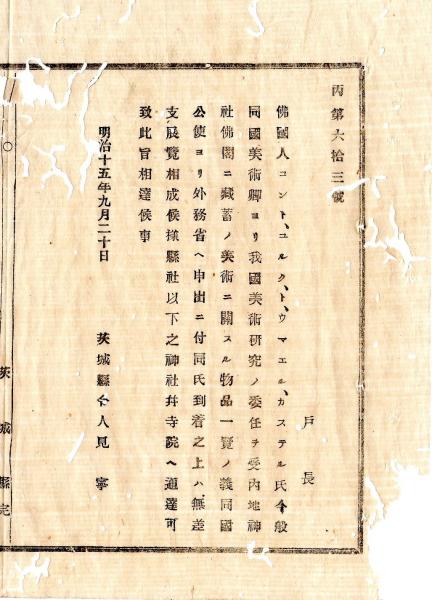 丙第六拾三號
戸長
佛國人コント、ユルク、ト、ウマエル、カステル氏今般
同國美術卿ヨリ我國美術研究ノ委任ヲ受內地神
社佛閣ニ藏蓄ノ美術ニ關スル物品一覽ノ義同國
公使ヨリ外務省ヘ申出ニ付同氏到着之上ハ無差
支展覽相成候樣縣社以下之神社幷寺院ヘ通達可
致此旨相達候事
明治十五年九月二十日
茨城縣令人見寧
茨城縣